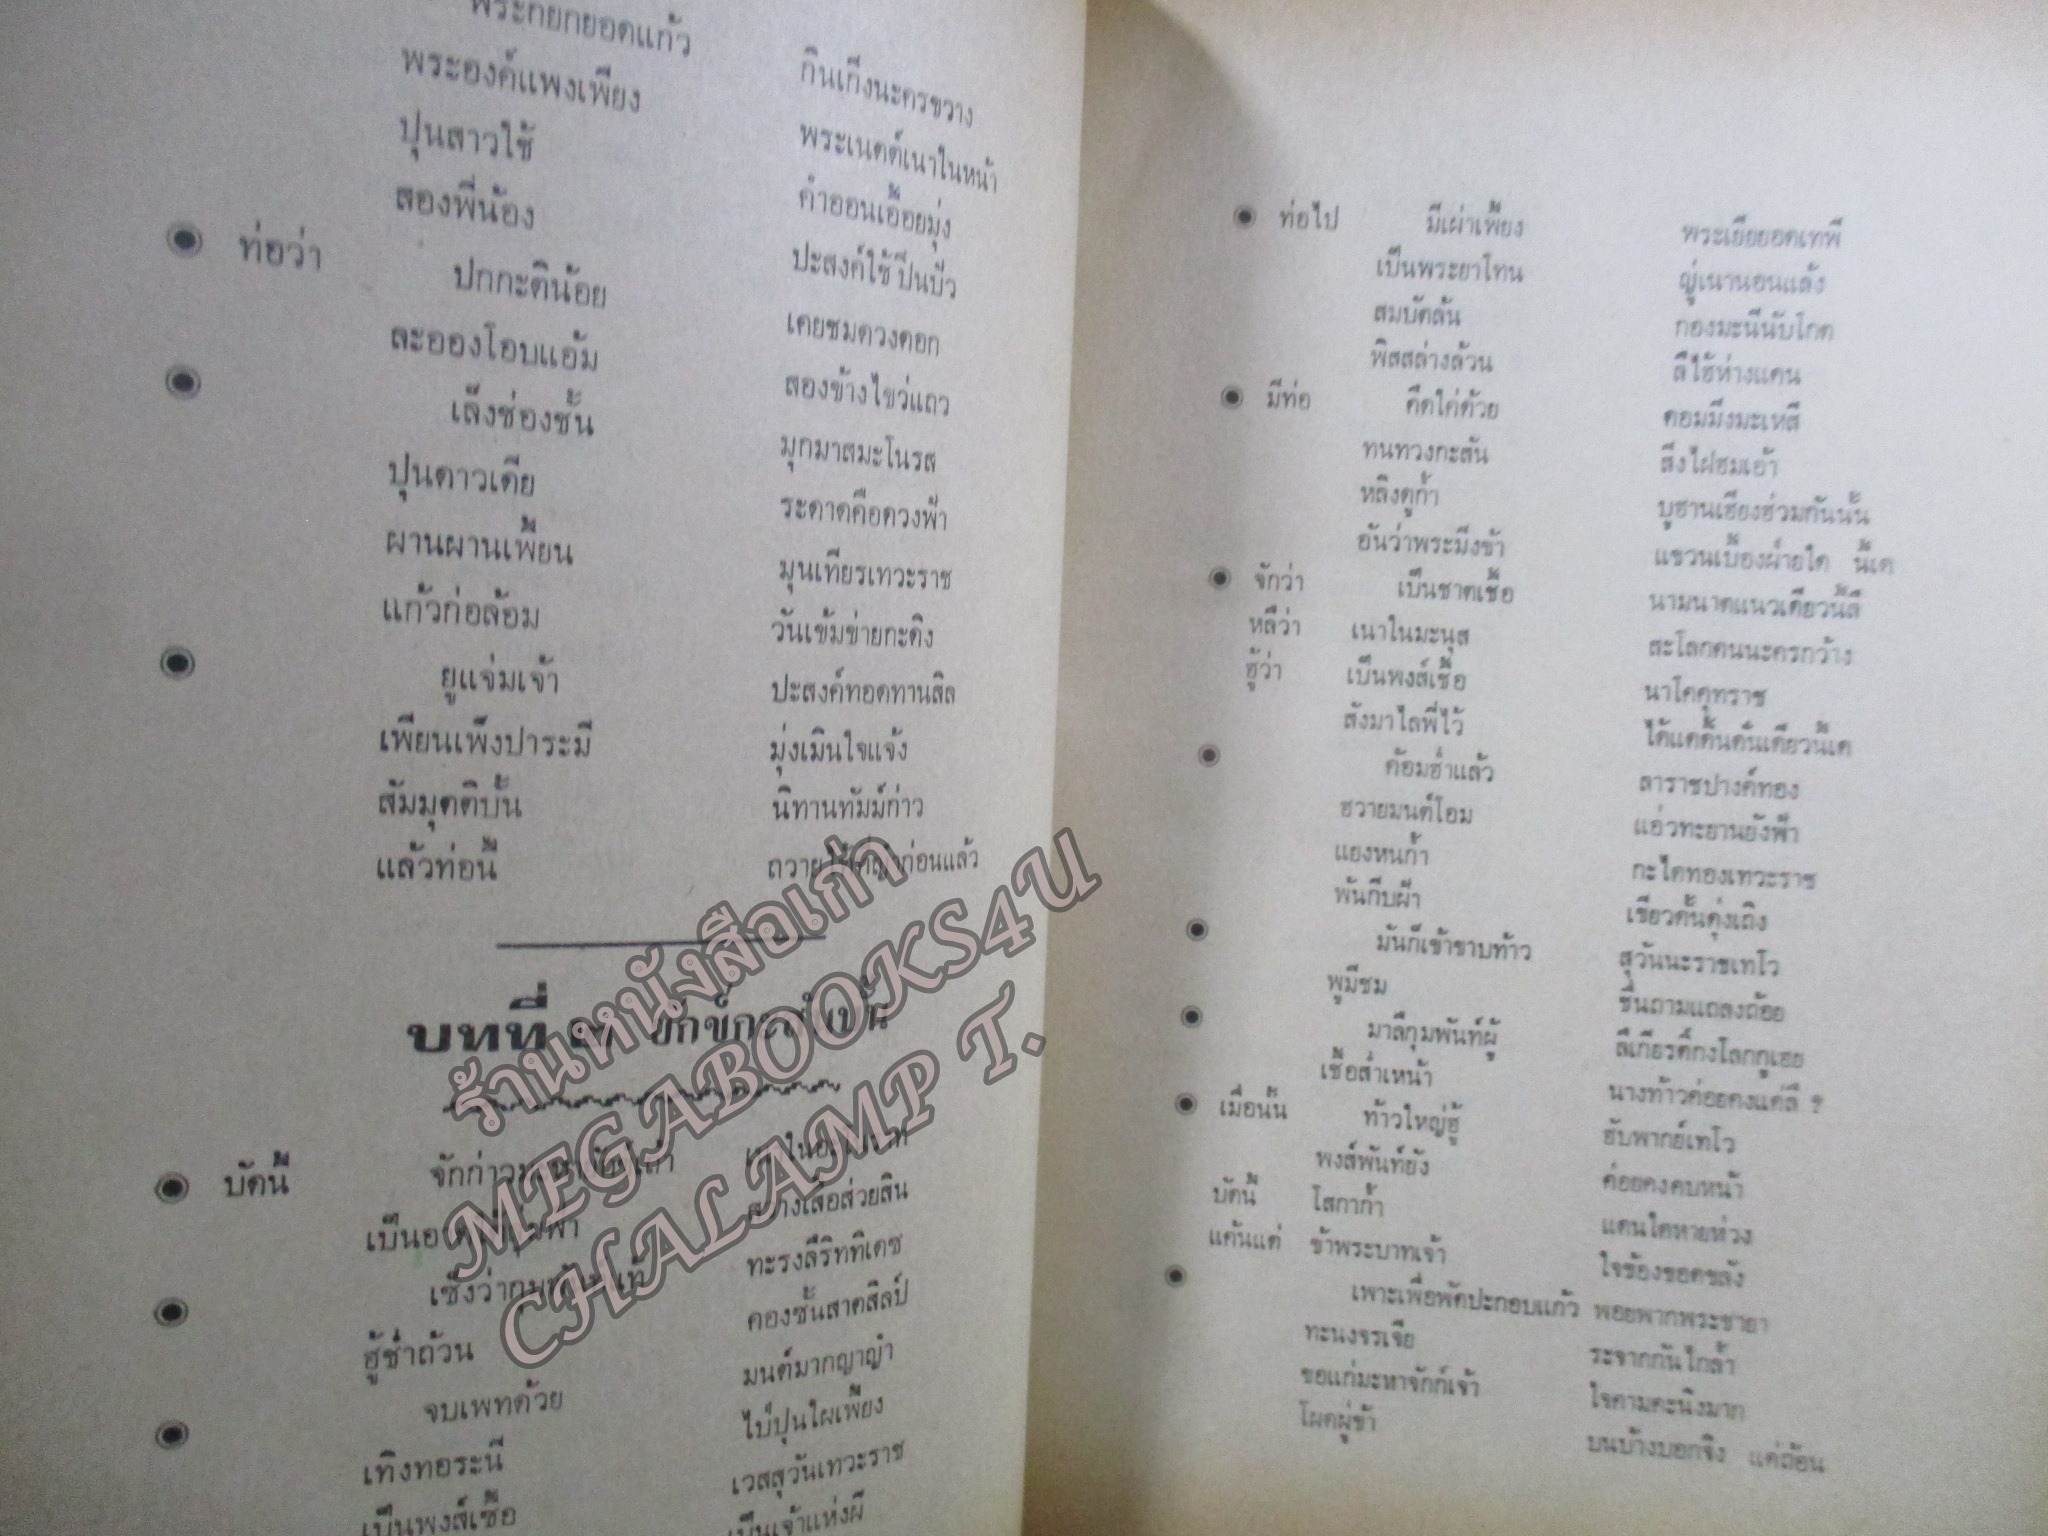 พระกยกยอดแก้ว กินเกิ่งนะครขวาง
พระองค์แพงเพียง พระเนตต์เนาในหน้า
ปุนสาวใช้ คำออนเอื้อยมุ่ง
สองพี่น้อง ปะสงค์ใช้ ปิ่นบัว
ท่อว่า ปกกะตีน้อย เคยชมดวงดอก
ละอองโอบแอ้ม สองข้างไขว่แถว
เล็งช่องชั้น มุกมาสมะโนรส
ปุนดาวเดีย ระดาดคือดวงฟ้า
ผานผานเพี้ยน มุนเทียรเทวะราช
แก้วก่อล้อม วันเข้มข่ายกะดิง
ยูแจ่มเจ้า ปะสงค์ทอดทานสิล
เพียนเพ็งปาระมี มุ่งเมินใจแจ้ง
สัมมุตติบั้น นิทานทัมม์ก่าว
แล้วท่อนี้ ก่อนแล้ว
บทที่
บัดนี้
เป็น สว่างเสื้อส่วยสิน
เซิ่งว่ากุม ทะรงลีริททิเดช
ฮู้ซ่ำถ้วน คองชั้นสาดสิลป์
จบเพทด้วย มนต์มากญาญำ
เทิงทอระนี ไป่ปุนใผเพี้ยง
เป็นพงส์เชื้อ เวสสุวันเทวะราช
เป็นเจ้าแห่งผี
ร้านหนังสือเก่า
MEGABOOKS4U
CHALAMP T.
ท่อไป มีเผ่าเพี้ยง พระเยียยอดเทพี
เป็นพระยาโทน ญู่เนานอนแล้ง
สมบัตล้น กองมะนีนับโกต
พิสสล่างล้วน ลีไฮ้ห่างแคน
มีท่อ คึดใค่ด้วย ดอมมิ่งมะเหสี
ทนทวงกะสัน สิ่งไฝฮมเอ้า
หลิงดูก้ำ บูฮานเฮียงฮ่วมกันนั้น
อันว่าพระมิ่งข้า แขวนเบื้องฝ่ายใด นี้เด
จักว่า เป็นชาตเชื้อ นามนาคแนวเดียวนี้ลี
หลีว่า เนาในมะนุส สะโลกคนนะครกว้าง
ฮู้ว่า เป็นพงส์เชื้อ นาโคคุทราช
สังมาไลพี่ไว้ ได้แดดั้นดั้นเดียวนี้เด
ค้อมฮ่ำแล้ว ลาราชปางค์ทอง
ฮวายมนต์โอม แอ่วทะยานยังฟ้า
แยงหนก้ำ กะไดทองเทวะราช
พันกีบผ้า เขียวดั้นดุ่งเถิง
มันก็เข้าขาบท้าว สุวันนะราชเทโว
พูมีชม ชื่นถามแถลงถ้อย
มาลีกุมพันท์ผู้ ลีเกียรติ์กงโลกกูเฮย
เชื้อส่ำเหง้า นางท้าวค่อยคงแด่ลี ?
เมื่อนั้น ท้าวใหญ่ฮู้ ฮับพากย์เทโว
พงส์พันท์ยัง ค่อยคงคบหน้า
บัดนี้ โสกาก้ำ แดนใดหายห่วง
แค้นแต่ ข้าพระบาทเจ้า ใจข้องขอดขลัง
เพาะเพื่อพัดปะกอบแก้ว พอยพากพระชายา
ทะนงจรเจีย ระจากกันใกล้ำ
ขอแก่มะหาจักก์เจ้า ใจดามคะนิงมาก
โผดผู่ข้า บนบ้างบอกจิ่ง แด่ถ้อน